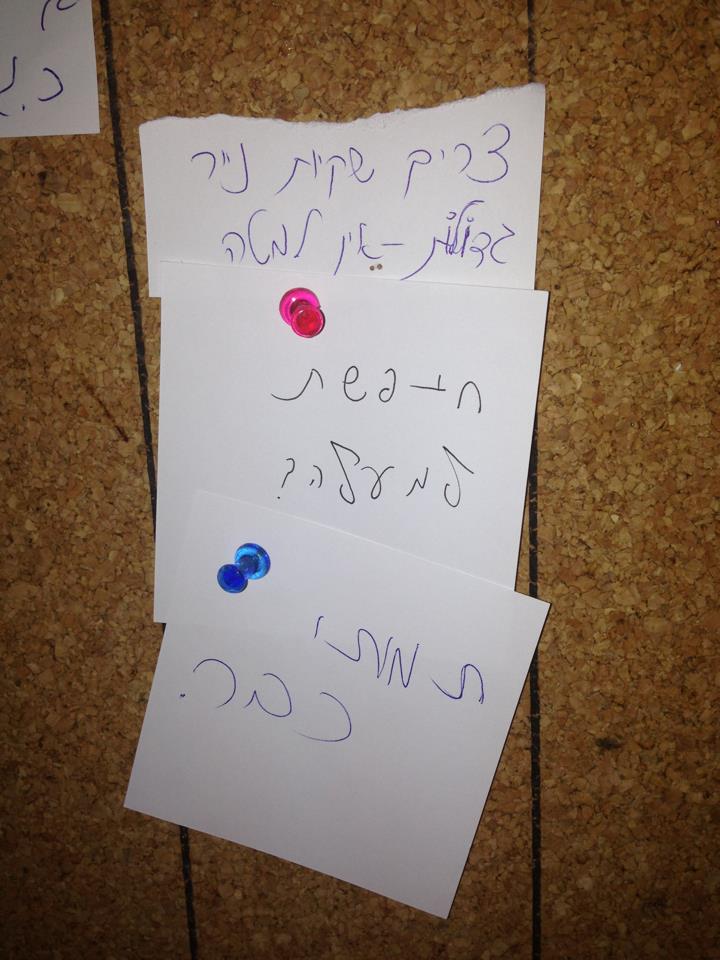 צריכ שקיות נייר
גדולות - אין למטה
חיפשת
למעלה?
תמותי
כבר.